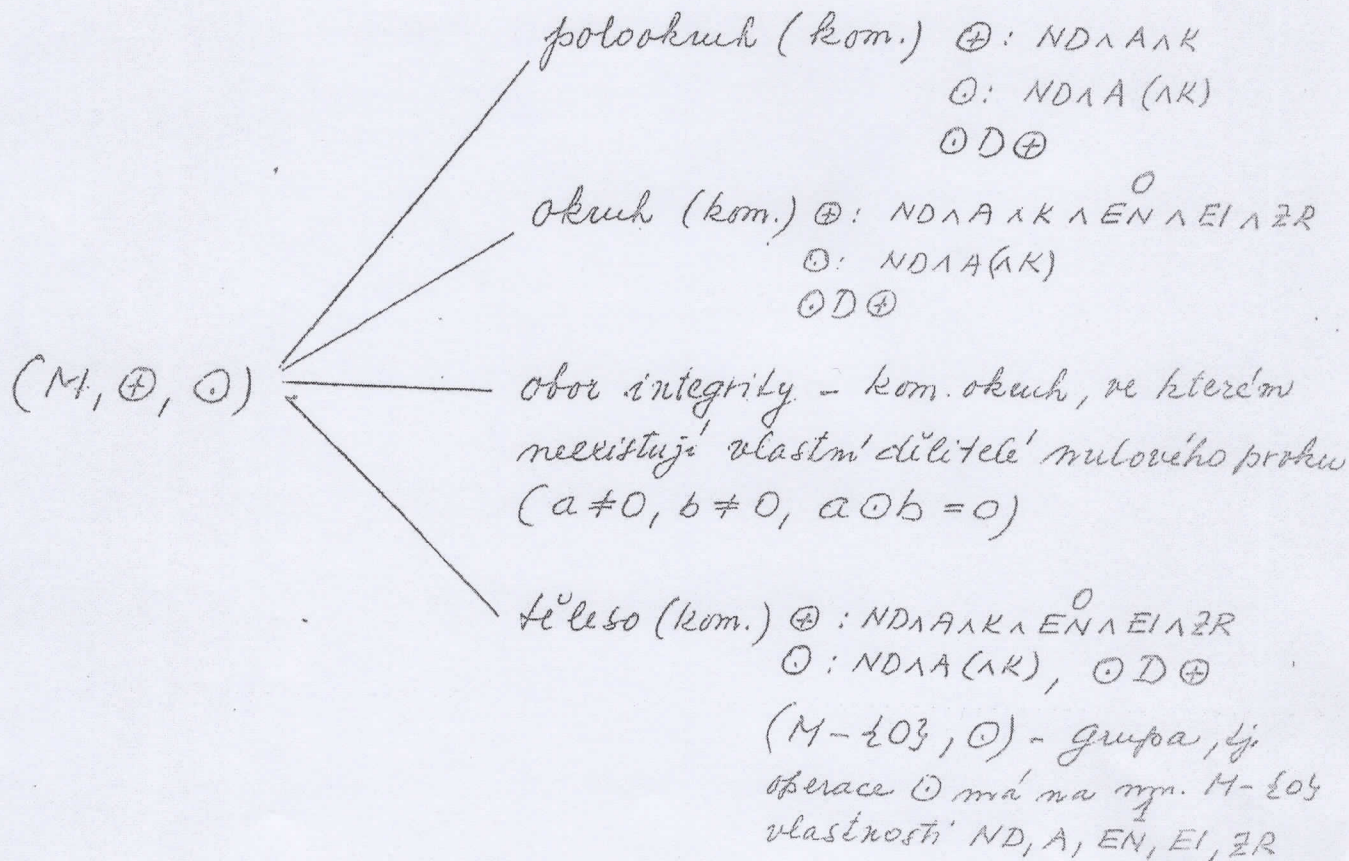 polookruh (kom.) ⊕: ND∧A∧K
⊙: ND∧A (∧K)
⊙D⊕
O
okruh (kom.) ⊕: ND∧A∧K∧EN∧EI∧ZR
⊙: ND∧A(∧K)
⊙D⊕
(M, ⊕, ⊙)
obor integrity – kom. okruh, ve kterém
neexistují vlastní dělitelé nulového prvku
(a≠0, b≠0, a⊙b=0)
O
těleso (kom.) ⊕: ND∧A∧K∧EN∧EI∧ZR
⊙: ND∧A(∧K), ⊙D⊕
(M-{0}, ⊙) – grupa, tj.
operace ⊙ má na mn. M-{0}
1
vlastnosti ND, A, EN, EI, ZR